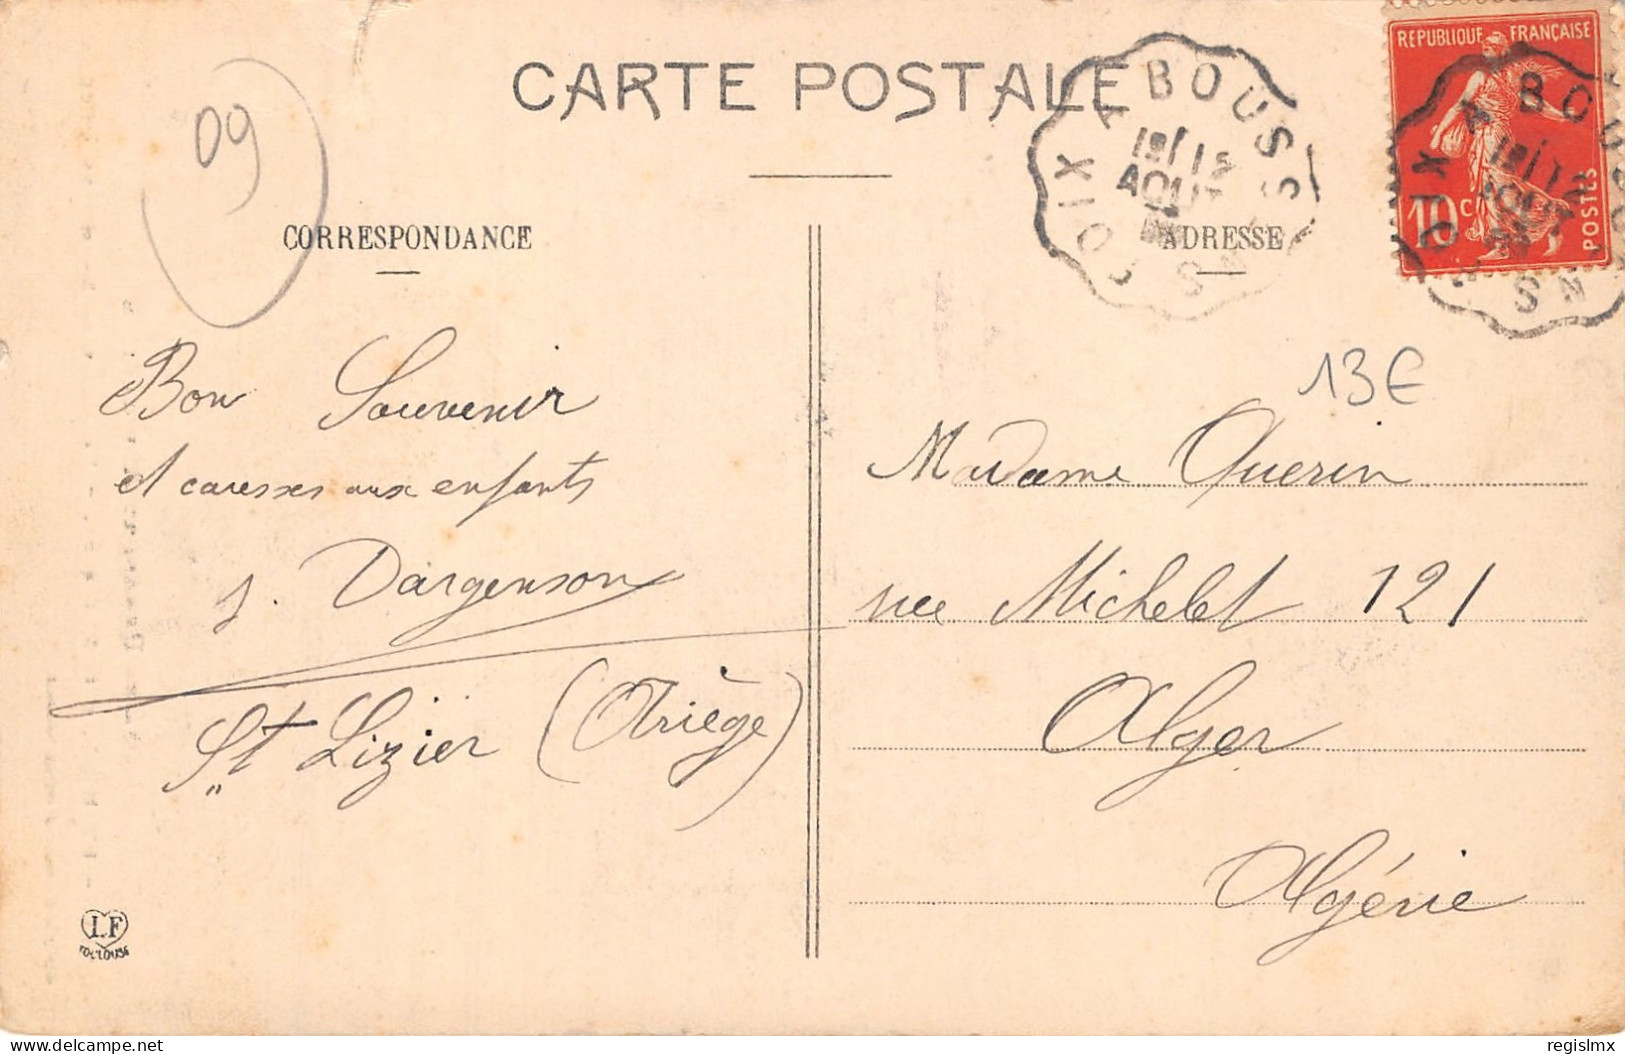 CARTE POSTALE
09
CORRESPONDANCE
ADRESSE
REPUBLIQUE FRANÇAISE
10 c
POSTES
FOIX A BOUSSENS
AOUT
13€
Bon Souvenir
et caresses aux enfants
J. Dargenson
St Lizier (Ariège)
Madame Querin
rue Michelet 121
Alger
Algérie
LF
TOULOUSE
delcampe.net
regislmx